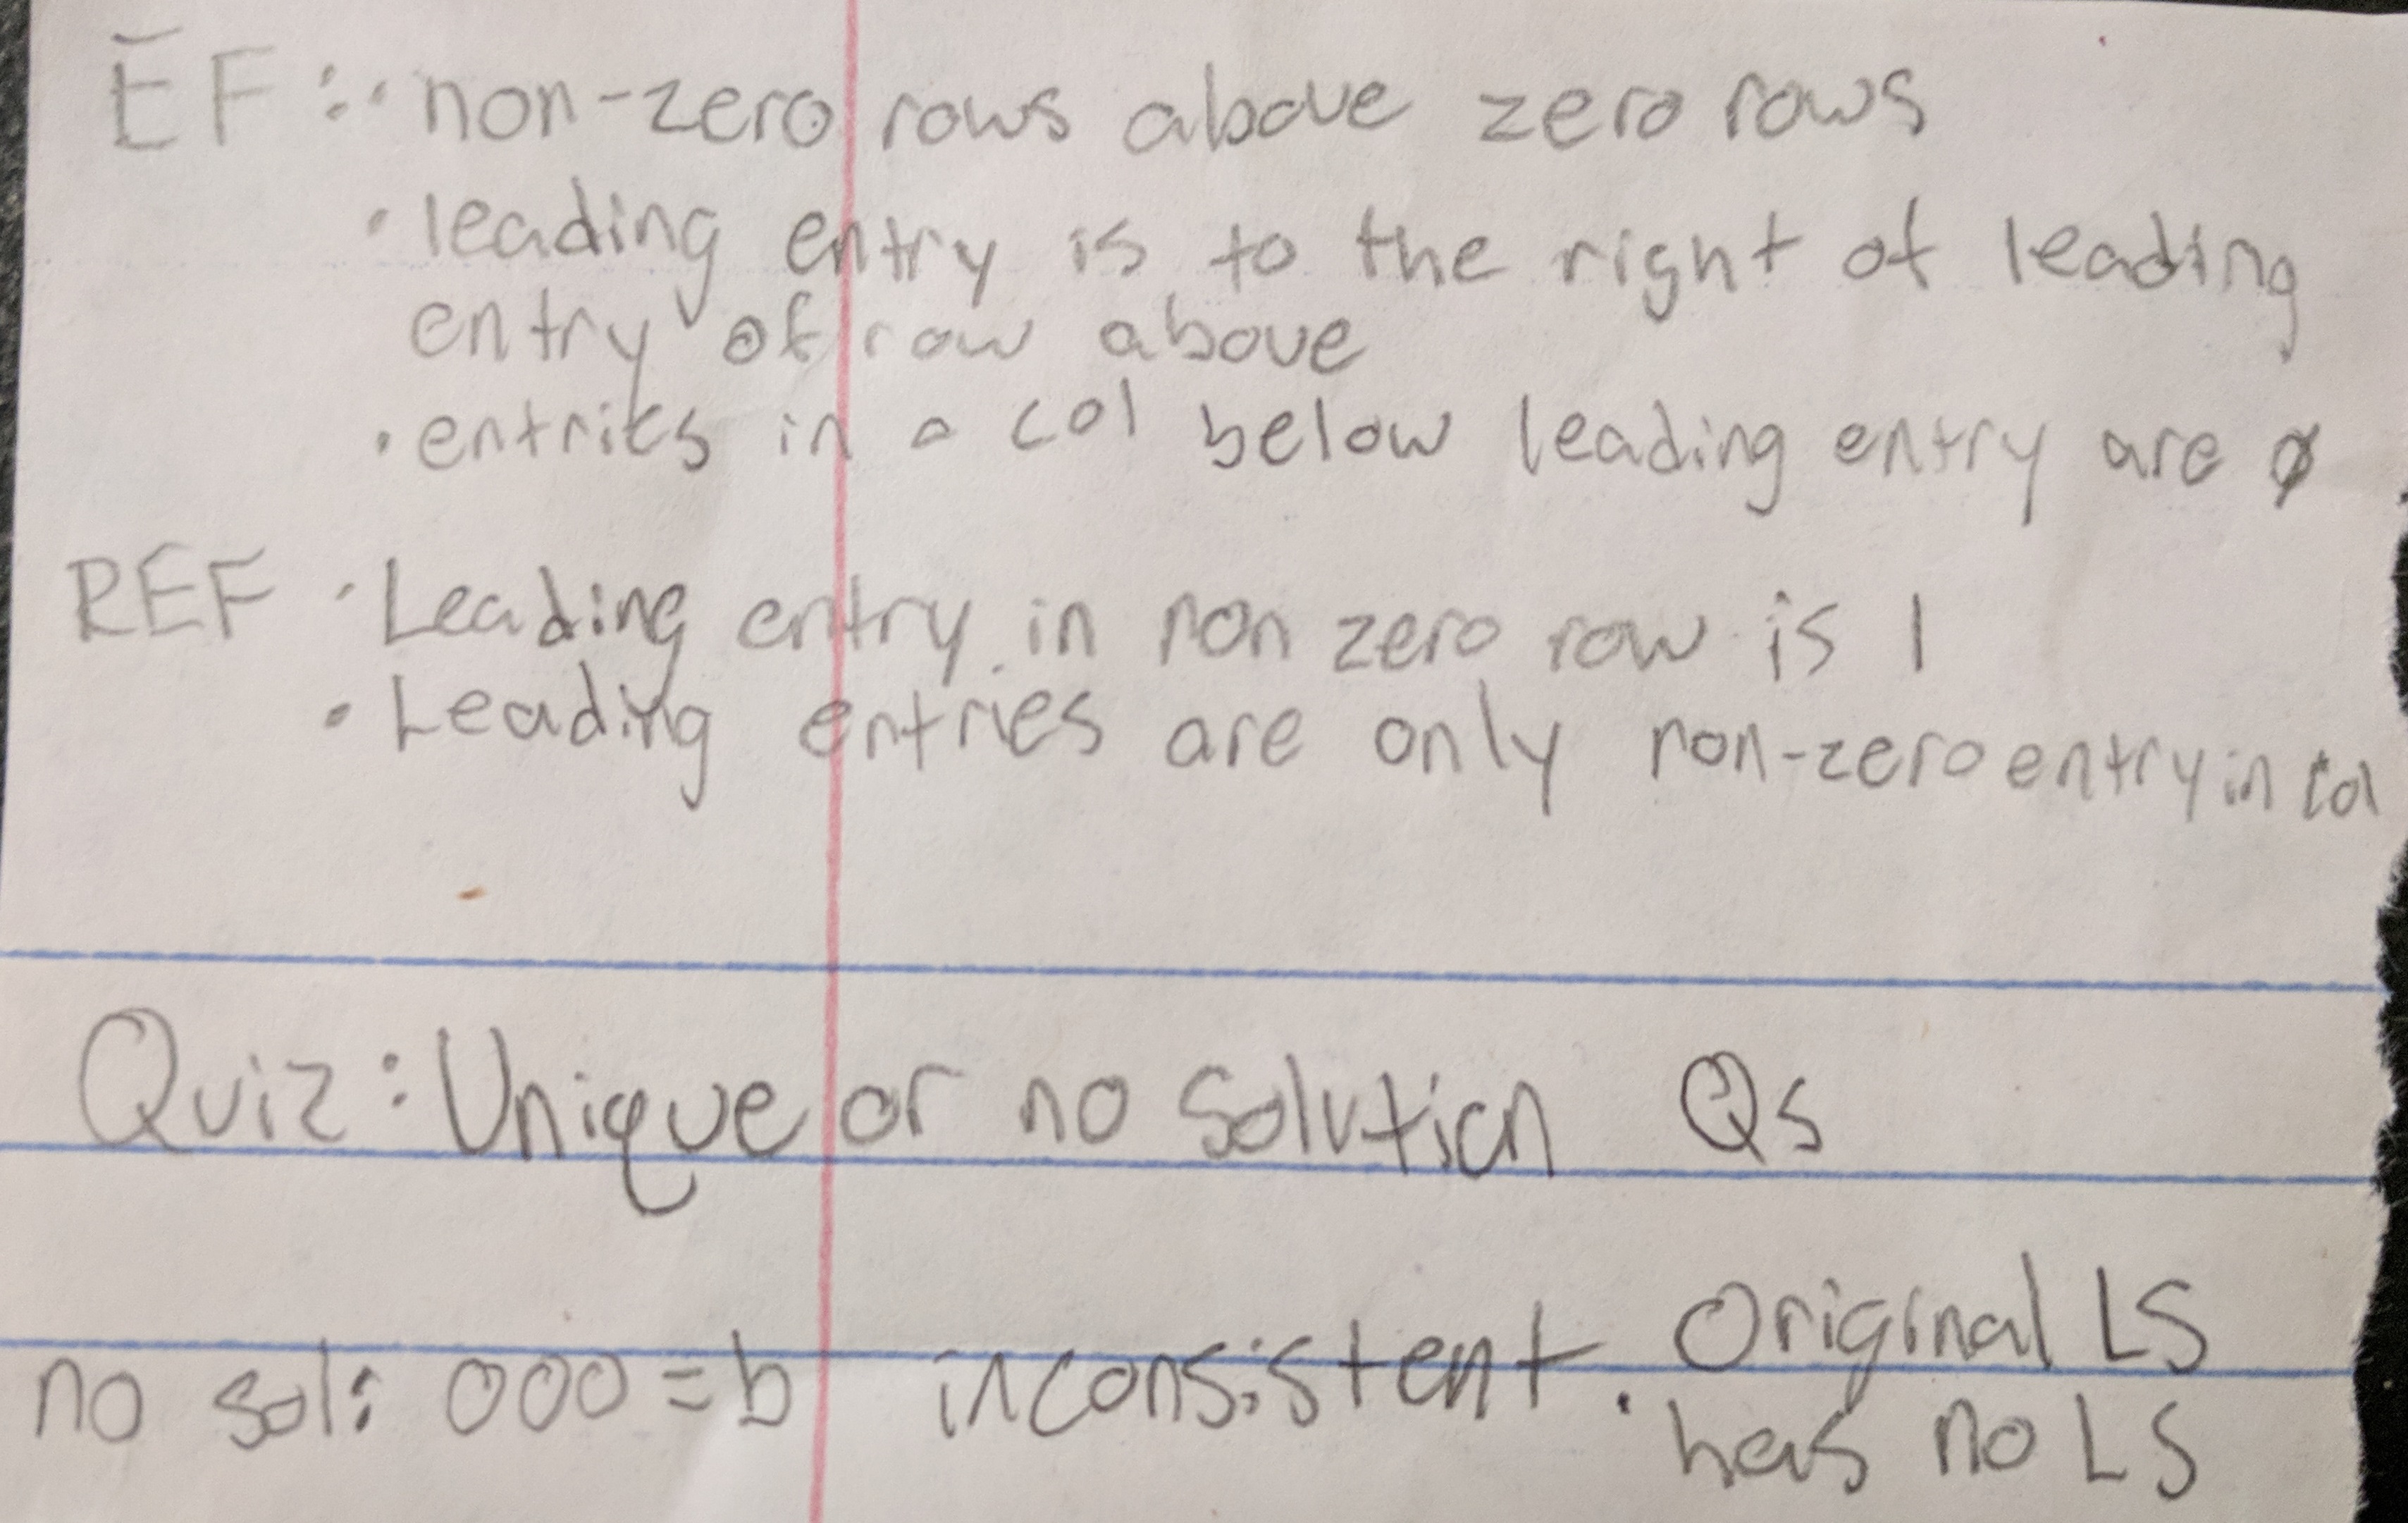 EF: · non-zero rows above zero rows
· leading entry is to the right of leading
entry of row above
· entries in a col below leading entry are 0
REF · Leading entry in non zero row is 1
· Leading entries are only non-zero entry in col
Quiz: Unique or no solution Qs
no sol: 000 = b inconsistent. Original LS
has no LS